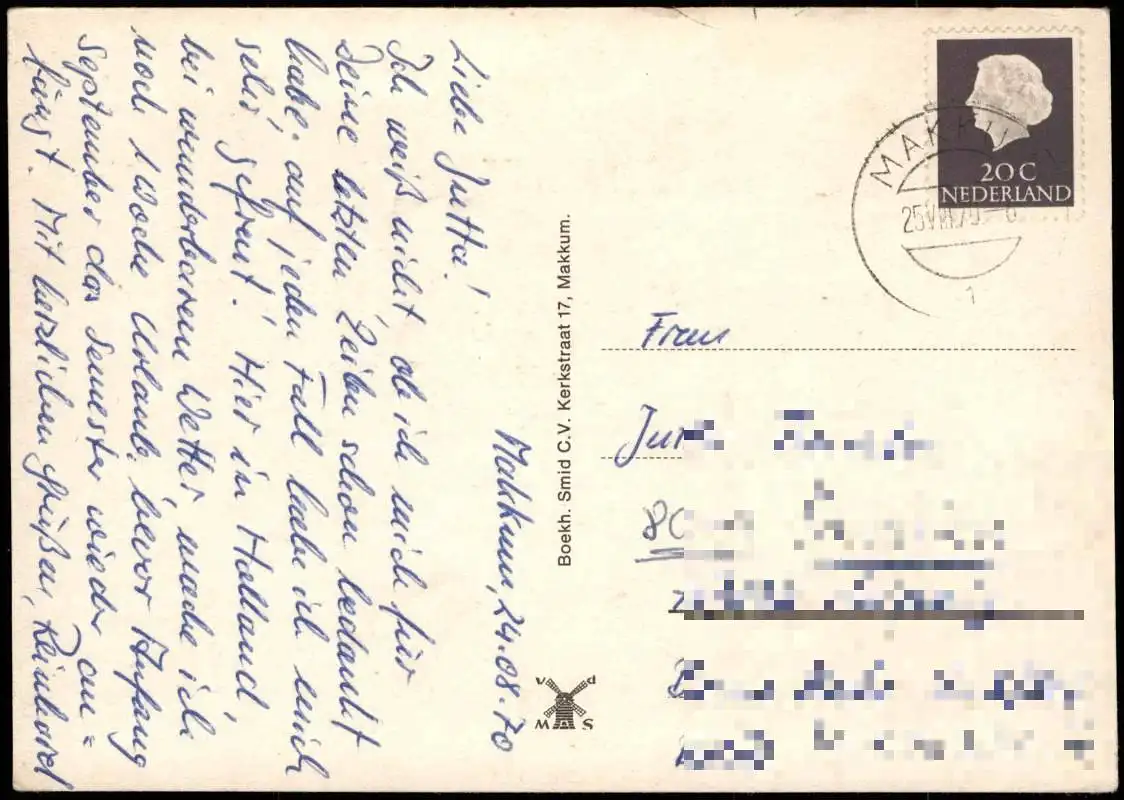 Makkum, 24.08.70
Liebe Jutta!
Ich weiß nicht, ob ich mich für
Deine letzten Zeilen schon bedankt
habe; auf jeden Fall habe ich mich
sehr gefreut! Hier in Holland,
bei wunderbarem Wetter, mache ich
noch 1 Woche Urlaub, bevor Anfang
September das Semester wieder an=
fängt. Mit herzlichen Grüßen, Reinhard
Boekh. Smid C.V. Kerkstraat 17, Makkum.
v d
W A S
20 C
NEDERLAND
MAKKUM
25 VIII
1
Frau
80